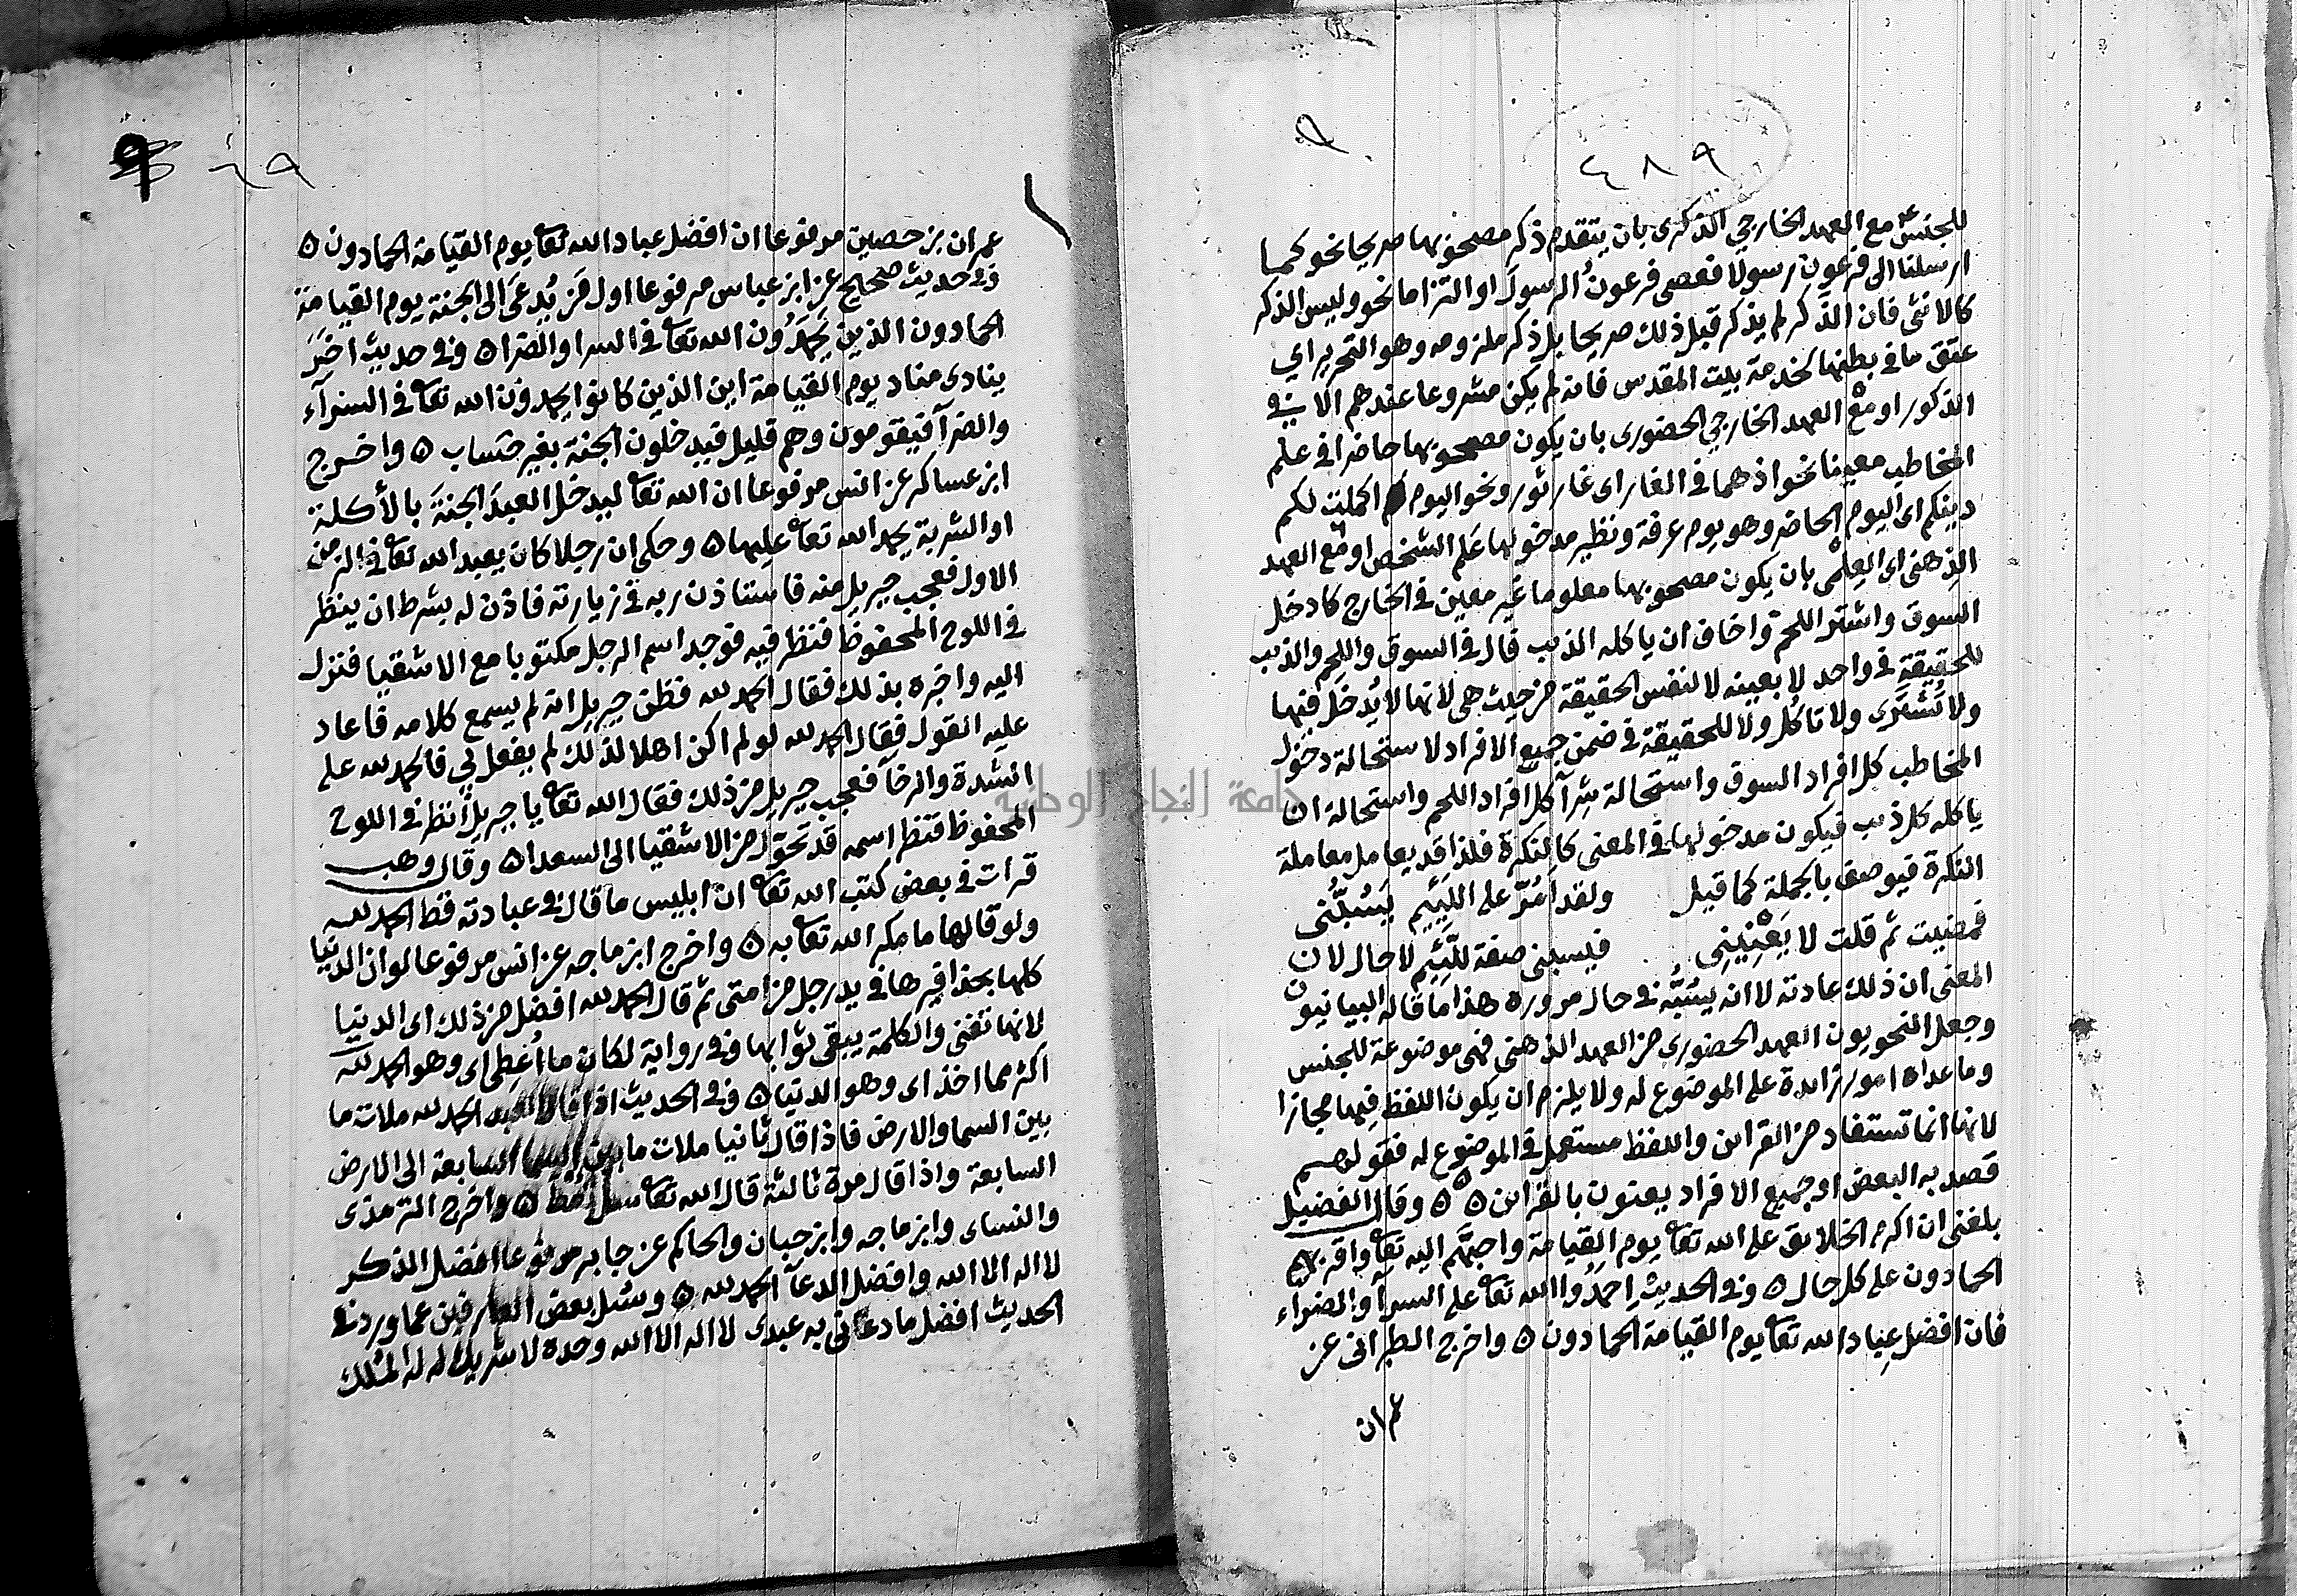 ٤٨٩
للجنس مع العهد الخارجي الذكرى بان يتقدم ذكر مصحوبها صريحا نحو كما
ارسلنا الى فرعون رسولا فعصى فرعونُ الرسولَ او التزاما نحو وليس الذكر
كالانثى فان الذَّكر لم يذكر قبل ذلك صريحا بل ذكر ملزومه وهو التحرير اي
عتق ما في بطنها لخدمة بيت المقدس فانه لم يكن مشروعا عندهم الا في
الذكور او مع العهد الخارجي الحضورى بان يكون مصحوبها حاضرا في علم
المخاطب معينا نحو اذ هما في الغار اى غار ثور ونحو اليوم اكملت لكم
دينكم اى اليوم الحاضر وهو يوم عرفة ونظير مدخولها عَلم الشخص او مع العهد
الذِهنى اى العِلمى بان يكون مصحوبها معلوما غير معين في الخارج كادخل
السوق واشتر اللحم واخاف ان ياكله الذيب فال في السوق واللحم والذيب
للحقيقة في واحد لا بعينه لا لنفس الحقيقة من حيث هى لانها لا يُدخَل فيها
ولا تُشترَى ولا تاكُل ولا للحقيقة في ضمن جميع الافراد لاستحالة دخول
المخاطب كل افراد السوق واستحالة شرآ كل افراد اللحم واستحالة ان
ياكله كل ذيب فيكون مدخولها في المعنى كالنكرة فلذا قد يعامل معاملة
النكرة فيوصف بالجملة كما قيل ولقد اَمُرّ على اللئيم يَسُبُّنى
فمضيت ثم قلت لا يَعْنِينِى فيسبنى صفة للئيم لا حال لان
المعنى ان ذلك عادته لا انه يسُبُّه في حال مروره هذا ما قاله البيانيون
وجعل النحويون العهد الحضورى من العهد الذهنى فهى موضوعة للجنس
وما عداه امور زايدة على الموضوع له ولا يلزم ان يكون اللفظ فيها مجازا
لانها انما تستفاد من القراين واللفظ مستعمل في الموضوع له فقولهم
قصد به البعض او جميع الافراد يعنون بالقراين ه ه وقال الفضيل
بلغنى ان اكرم الخلايق على الله تعا يوم القيامة واحبَّهم اليه تعا واقربهم
الحمادون على كل حال ه وفي الحديث اِحمَدُوا الله تعا على السرآ والضراء
فان افضل عباد الله تعا يوم القيامة الحمادون ه واخرج الطبرانى عن
عمران
٤٩
عمران بن حصين مرفوعا ان افضل عباد الله تعا يوم القيامة الحمادون ه
وفي حديث صحيح عن ابن عباس مرفوعا اول مَن يُدعَى الى الجنة يوم القيامة
الحمادون الذين يَحمَدُون الله تعا في السرا والضرا ه وفي حديث اخَرَ
ينادى مناد يوم القيامة اين الذين كانوا يحمدون الله تعا في السرآء
والضرآ فيقومون وهم قليل فيدخلون الجنة بغير حساب ه واخرج
ابن عساكر عن انس مرفوعا ان الله تعا ليدخل العبدَ الجنةَ بالأكلة
او الشربة يحمد الله تعا عليها ه وحكى ان رجلا كان يعبد الله تعا في الزمن
الاول فعجب جبريل منه فاستاذن ربه في زيارته فاذن له بشرط ان ينظر
في اللوح المحفوظ فنظر فيه فوجد اسم الرجل مكتوبا مع الاشقيا فنزل
اليه واخبره بذلك فقال الحمد لله فظن جبريل انه لم يسمع كلامه فاعاد
عليه القول فقال الحمد لله لو لم اكن اهلا لذلك لم يفعل بي فالحمد لله على
الشدة والرخآ فعجب جبريل من ذلك فقال الله تعا يا جبريل انظر في اللوح
المحفوظ فنظر اسمه قد تحوّل من الاشقيا الى السعدا ه وقال وهب
قرات في بعض كتب الله تعا ان ابليس ما قال في عبادته قط الحمد لله
ولو قالها ما مكر الله تعا به ه واخرج ابن ماجه عن انس مرفوعا لو ان الدنيا
كلها بحذافيرها في يد رجل من امتى ثم قال الحمد لله افضل من ذلك اى الدنيا
لانها تفنى والكلمة يبقى ثوابها وفي رواية لكان ما اُعْطِى اى وهو الحمد لله
اكثر مما اخذ اى وهو الدنيا ه وفي الحديث اذا قال العبد الحمد لله ملات ما
بين السما والارض فاذا قال ثانيا ملات ما بين السما السابعة الى الارض
السابعة واذا قال مرة ثالثة قال الله تعا سل تعط ه واخرج الترمذى
والنساى وابن ماجه وابن حبان والحاكم عن جابر مرفوعا افضل الذكر
لا اله الا الله وافضل الدعآ الحمد لله ه وسُئل بعض العارفين عما ورد في
الحديث افضل ما دعانى به عبدى لا اله الا الله وحده لا شريك له له المُلك
جامعة النجاح الوطنية